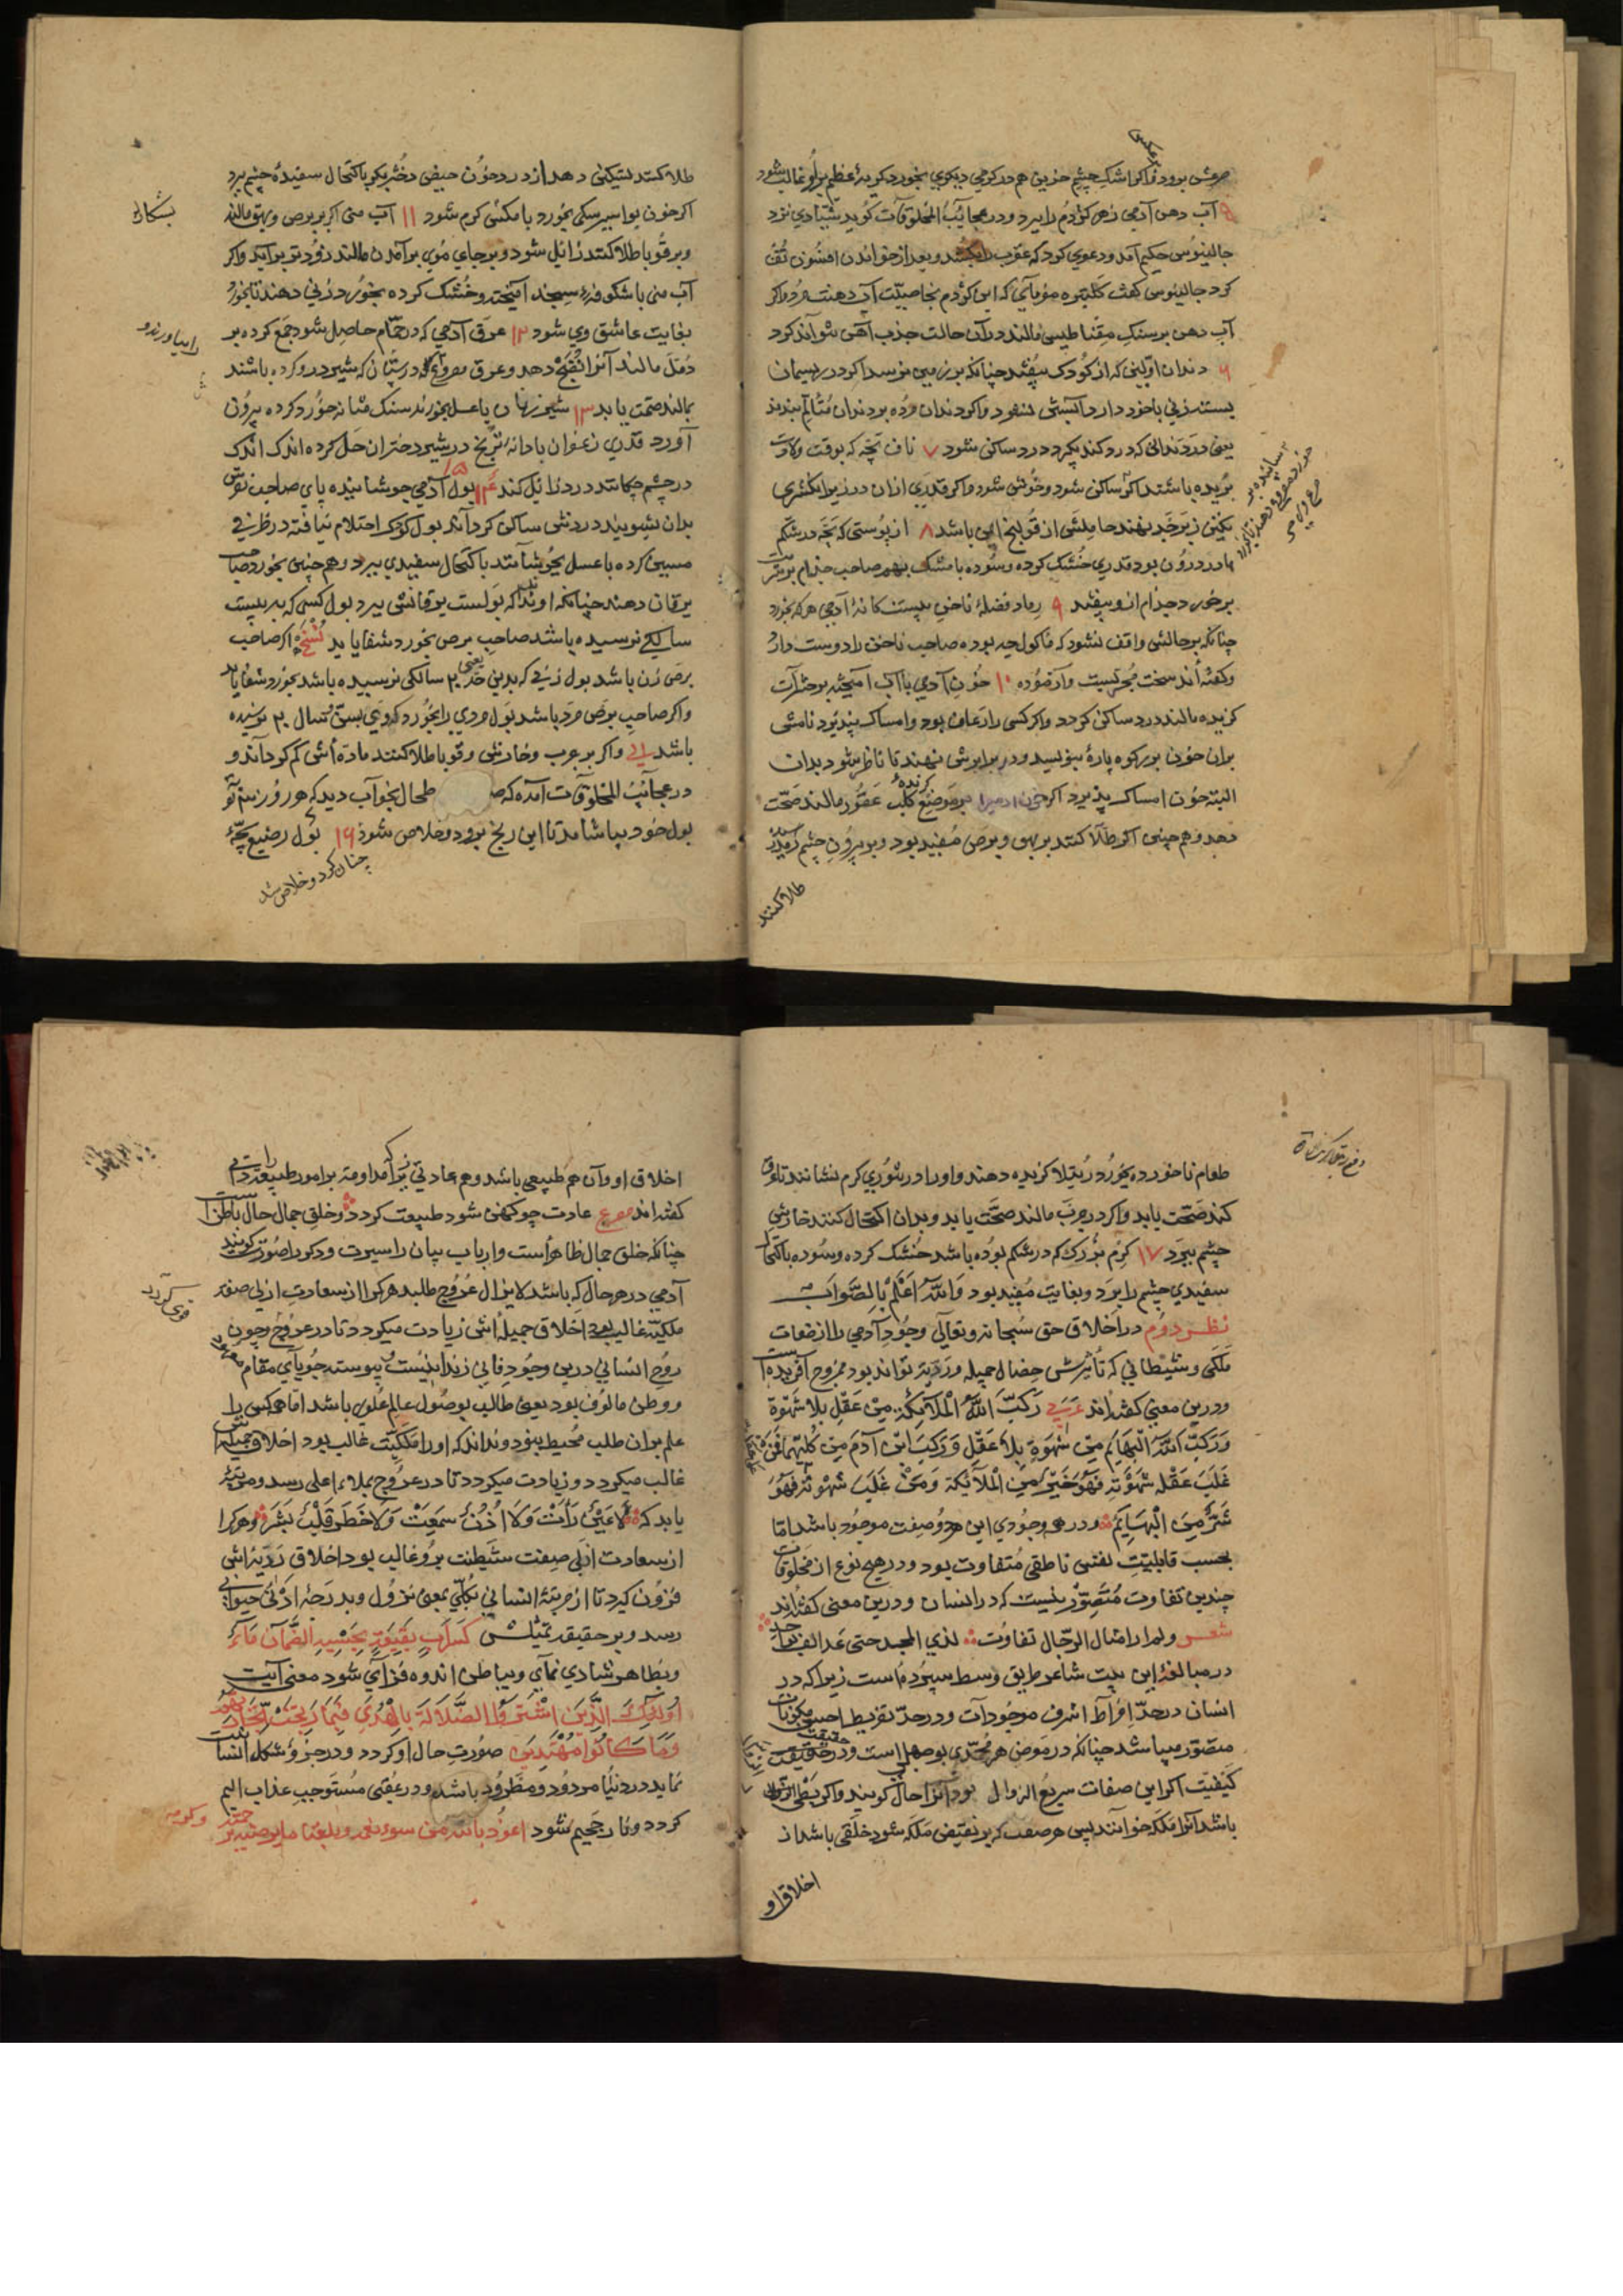 آب دهن آدمی زهر کژدم را ببرد و در عجایب المخلوقات گوید شیادی نزد
جالینوس حکیم آمد و دعوی کرد که عقرب را بکشد و بعد از خواندن افسون تف
کرد جالینوس گفت که این کژدم بخاصیت آب دهنت مرد و اگر
آب دهن بر سنک مقناطیس مالند در آن حالت جذب آهن نتواند کرد
۶ دندان اولین که از کودک بیفتد چنانکه بر زمین نرسد اگر در ریسمان
بسته زنی با خود دارد آبستن نشود و اگر دندان مرده بر دندان متألم بندند
یعنی دردندانی که درد کند بگیرد درد ساکن شود ۷ ناف بچه که بوقت ولادت
بریده باشند ساکن شود و خوش شود و اگر قدری ازان در زیر انکشتری
نکین زبرجد نهند حاملش از قولنج ایمن باشد ۸ از پوستی که بچه در شکم
مادر درون بود قدری خشک کرده و سوده با مشک بهم صاحب جذام
برخورد جذام از و بیفتد ۹ رماد فضله ناخن بیست کانه آدمی هر که بخورد
چنانکه بر حالش واقف نشود که ماکول چه بوده صاحب ناخن را دوست دارد
و کفته اند سخت مجربست و آزموده ۱۰ خون آدمی با آب آمیخته بر حشرات
کزیده مالند درد ساکن کردد و اگر کسی را رعاف بود و امساک نپذیرد نامش
بدان خون بر کوه پاره بنویسد و در برابرش نهند تا ناظر شود بدان
البته خون امساک پذیرد اگر خون آدمی را بر موضع کلب عقور مالند صحت
دهد و هم چنین اگر طلا کنند بر بهق و برص مفید بود و بر بیرون چشم
طلا کنند
طلا کنند تسکین دهد از درد خون حیض دختر بکر باکتحال سفیده چشم برد
اگر خون بواسیر سکی بخورد با مکشی کرم شود ۱۱ آب منی اگر بر برص و بهق مالند
و بر قوبا طلا کنند زائل شود و بر جای موی بر آمدن مالند زودتر بر آید و اگر
آب منی با شکوفه سنجد آمیخته و خشک کرده بخورد زنی دهند تا بخورد
بغایت عاشق وی شود ۱۲ عرق آدمی که در حمام حاصل شود جمع کرده بر
دمل مالند آنرا نضج دهد و عرق که در پستان که شیر درو کرده باشند
بمالند صحت یابد ۱۳ شیر زنان با عسل بخورند سنک مثانه خورد کرده بیرون
آورد قدری زعفران با دانه در شیر دختران حل کرده اندک اندک
در چشم چکانند درد زائل کند ۱۴ بول آدمی جوشانیده پای صاحب نقرس
بدان بشویند دردش ساکن کردانند بول کودک احتلام نیافته در ظرفی
مسین کرده با عسل بجوشانند باکتحال سفیدی ببرد و هم چنین بخورد صاحب
یرقان دهند چنانکه او نداند که بولست یرقانش ببرد بول کسی که به بیست
سالکی نرسیده باشد صاحب برص بخورد شفا یابد نسخه اگر صاحب
برص زن باشد بول زنی که بدین حد یعنی ۲۰ سالکی نرسیده باشد بخورد شفا یابد
و اگر صاحب برص مرد باشد بول مردی را بخورد که وی بسن سال ۲۰ نرسیده
باشد و اگر بر جرب و خارش و قوبا طلا کنند ماده اش کم کرداند و
در عجایب المخلوقات آمده که طحال بخواب دید که هر روز سه
بول خود بیاشامد تا این رنج برود و خلاص شود ۱۶ بول رضیع بچه
چنان کرد و خلاص شد
طعام ناخورده بخورد رتیلا کزیده دهند و او را در تنوری کرم نشانند تا عرق
کند صحت یابد و اگر در جرب مالند صحت یابد و بدان اکتحال کنند خارش
چشم ببرد ۱۷ کرم بزرک که در شکم بوده باشد خشک کرده و سوده باکتحال
سفیدی چشم را برد و بغایت مفید بود والله اعلم بالصواب
نظر دوم در اخلاق حق سبحانه و تعالی وجود آدمی را از صفات
ملکی و شیطانی که تأثرش خصال جمیله و ردیه تواند بود ممزوج آفریده است
و درین معنی کفته اند عربیه رکب الله الملائکة من عقل بلا شهوة
و رکب الله البهایم من شهوة بلا عقل و رکب ابن آدم من کلتیهما فمن
غلب عقله شهوته فهو خیر من الملائکة و من غلب شهوته فهو
شر من البهایم و در هر وجودی این هر دو صفت موجود باشد اما
بحسب قابلیت نفس ناطقی متفاوت بود و در هیچ نوع از مخلوقات
چندین تفاوت متصور نیست که در انسان و درین معنی کفته اند
شعر ولم ار امثال الرجال تفاوت لدی المجد حتی عد الف بواحد
در مبالغه این بیت شاعر طریق وسط سپرده است زیرا که در
انسان در حد افراط اشرف موجودات و در حد تفریط اخس مکونات
متصور میباشد چنانکه در معرض هر محمدی بوجهلی است و در حقیقت
کیفیت اگر این صفات سریع الزوال بود آنرا حال کویند و اگر بطی الزوال
باشد آنرا ملکه خوانند پس هر صفت که بر نفیض ملکه شود خلقی باشد از
اخلاق او
اخلاق او و آن هم طبیعی باشد و هم عادتی زیرا که مداومة بر امور طبیعة
کفته اند مصرع عادت چو کهن شود طبیعت کردد و خلق جمال حال باطن است
چنانکه خلق جمال ظاهر است و ارباب بیان را سیرت و دکر را صورت کویند
آدمی در هر حال که باشد لایزال عروج طلبد هر کرا از سعادت ازلی صفة
ملکیه غالب بود اخلاق جمیله اش زیادت میکردد تا در عروج و چون
روح انسانی درین وجود فانی زندانیست و پیوسته جویای مقام معهود
و وطن مالوف بود یعنی طالب بوصول عالم علوی باشد اما هر کس را
علم بران طلب محیط بنود و نداند که او را ملکیت غالب بود اخلاق جمیله اش
غالب میکردد و زیادت میکردد تا در عروج بملاء اعلی رسد و مرتبه
یابد که لا عین رأت ولا اذن سمعت ولا خطر قلب بشر و هر کرا
از سعادت ازلی صفت شیطنت برو غالب بود اخلاق ردیه اش
فزون کیرد تا از مرتبه انسانی بکلی بمعنی نزول و بدرجه ادنی حیوانی
رسد و بر حقیقه تمثیلش کسراب بقیعة یحسبه الظمآن ماء
و بظاهر شادی نمای و بباطن اندوه فزای شود معنی آیت
اولئک الذین اشتروا الضلالة بالهدی فما ربحت تجارتهم
وما کانوا مهتدین صورت حال او کردد و در جزو شکل انسانیت
نماید در دنیا مردود و مطرود باشد و در عقبی مستوجب عذاب الیم
کردد و نار جحیم شود اعوذ بالله من سوء